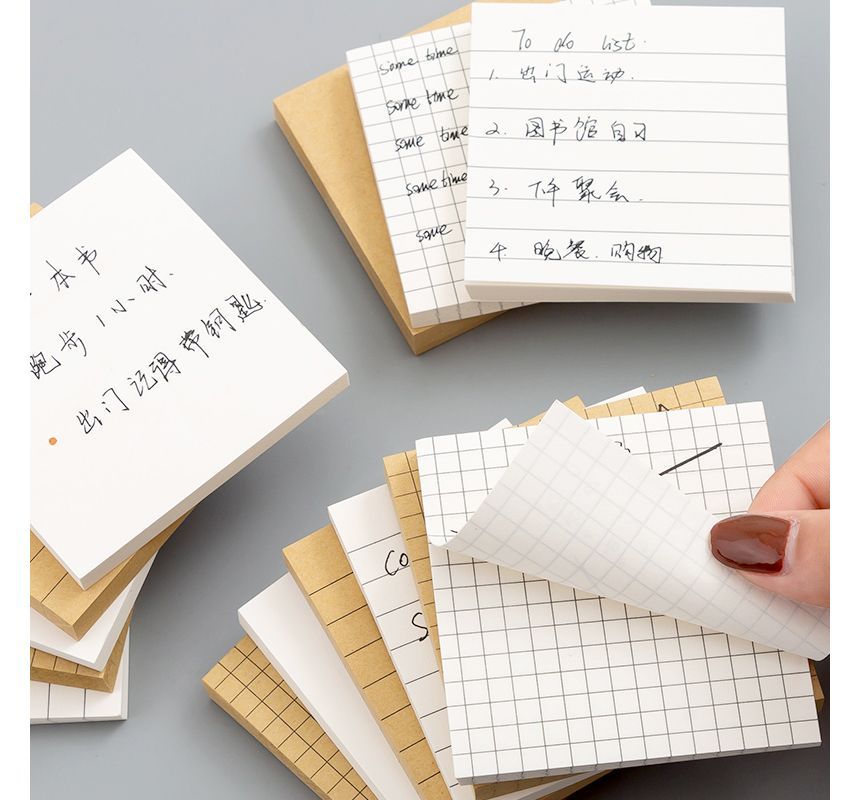 To do list.
1. 出门运动.
2. 图书馆自习
3. 下午聚会.
4. 晚餐.购物
some time
some time
some time
some time
some
本书
跑步1小时.
出门记得带钥匙.
Co
S